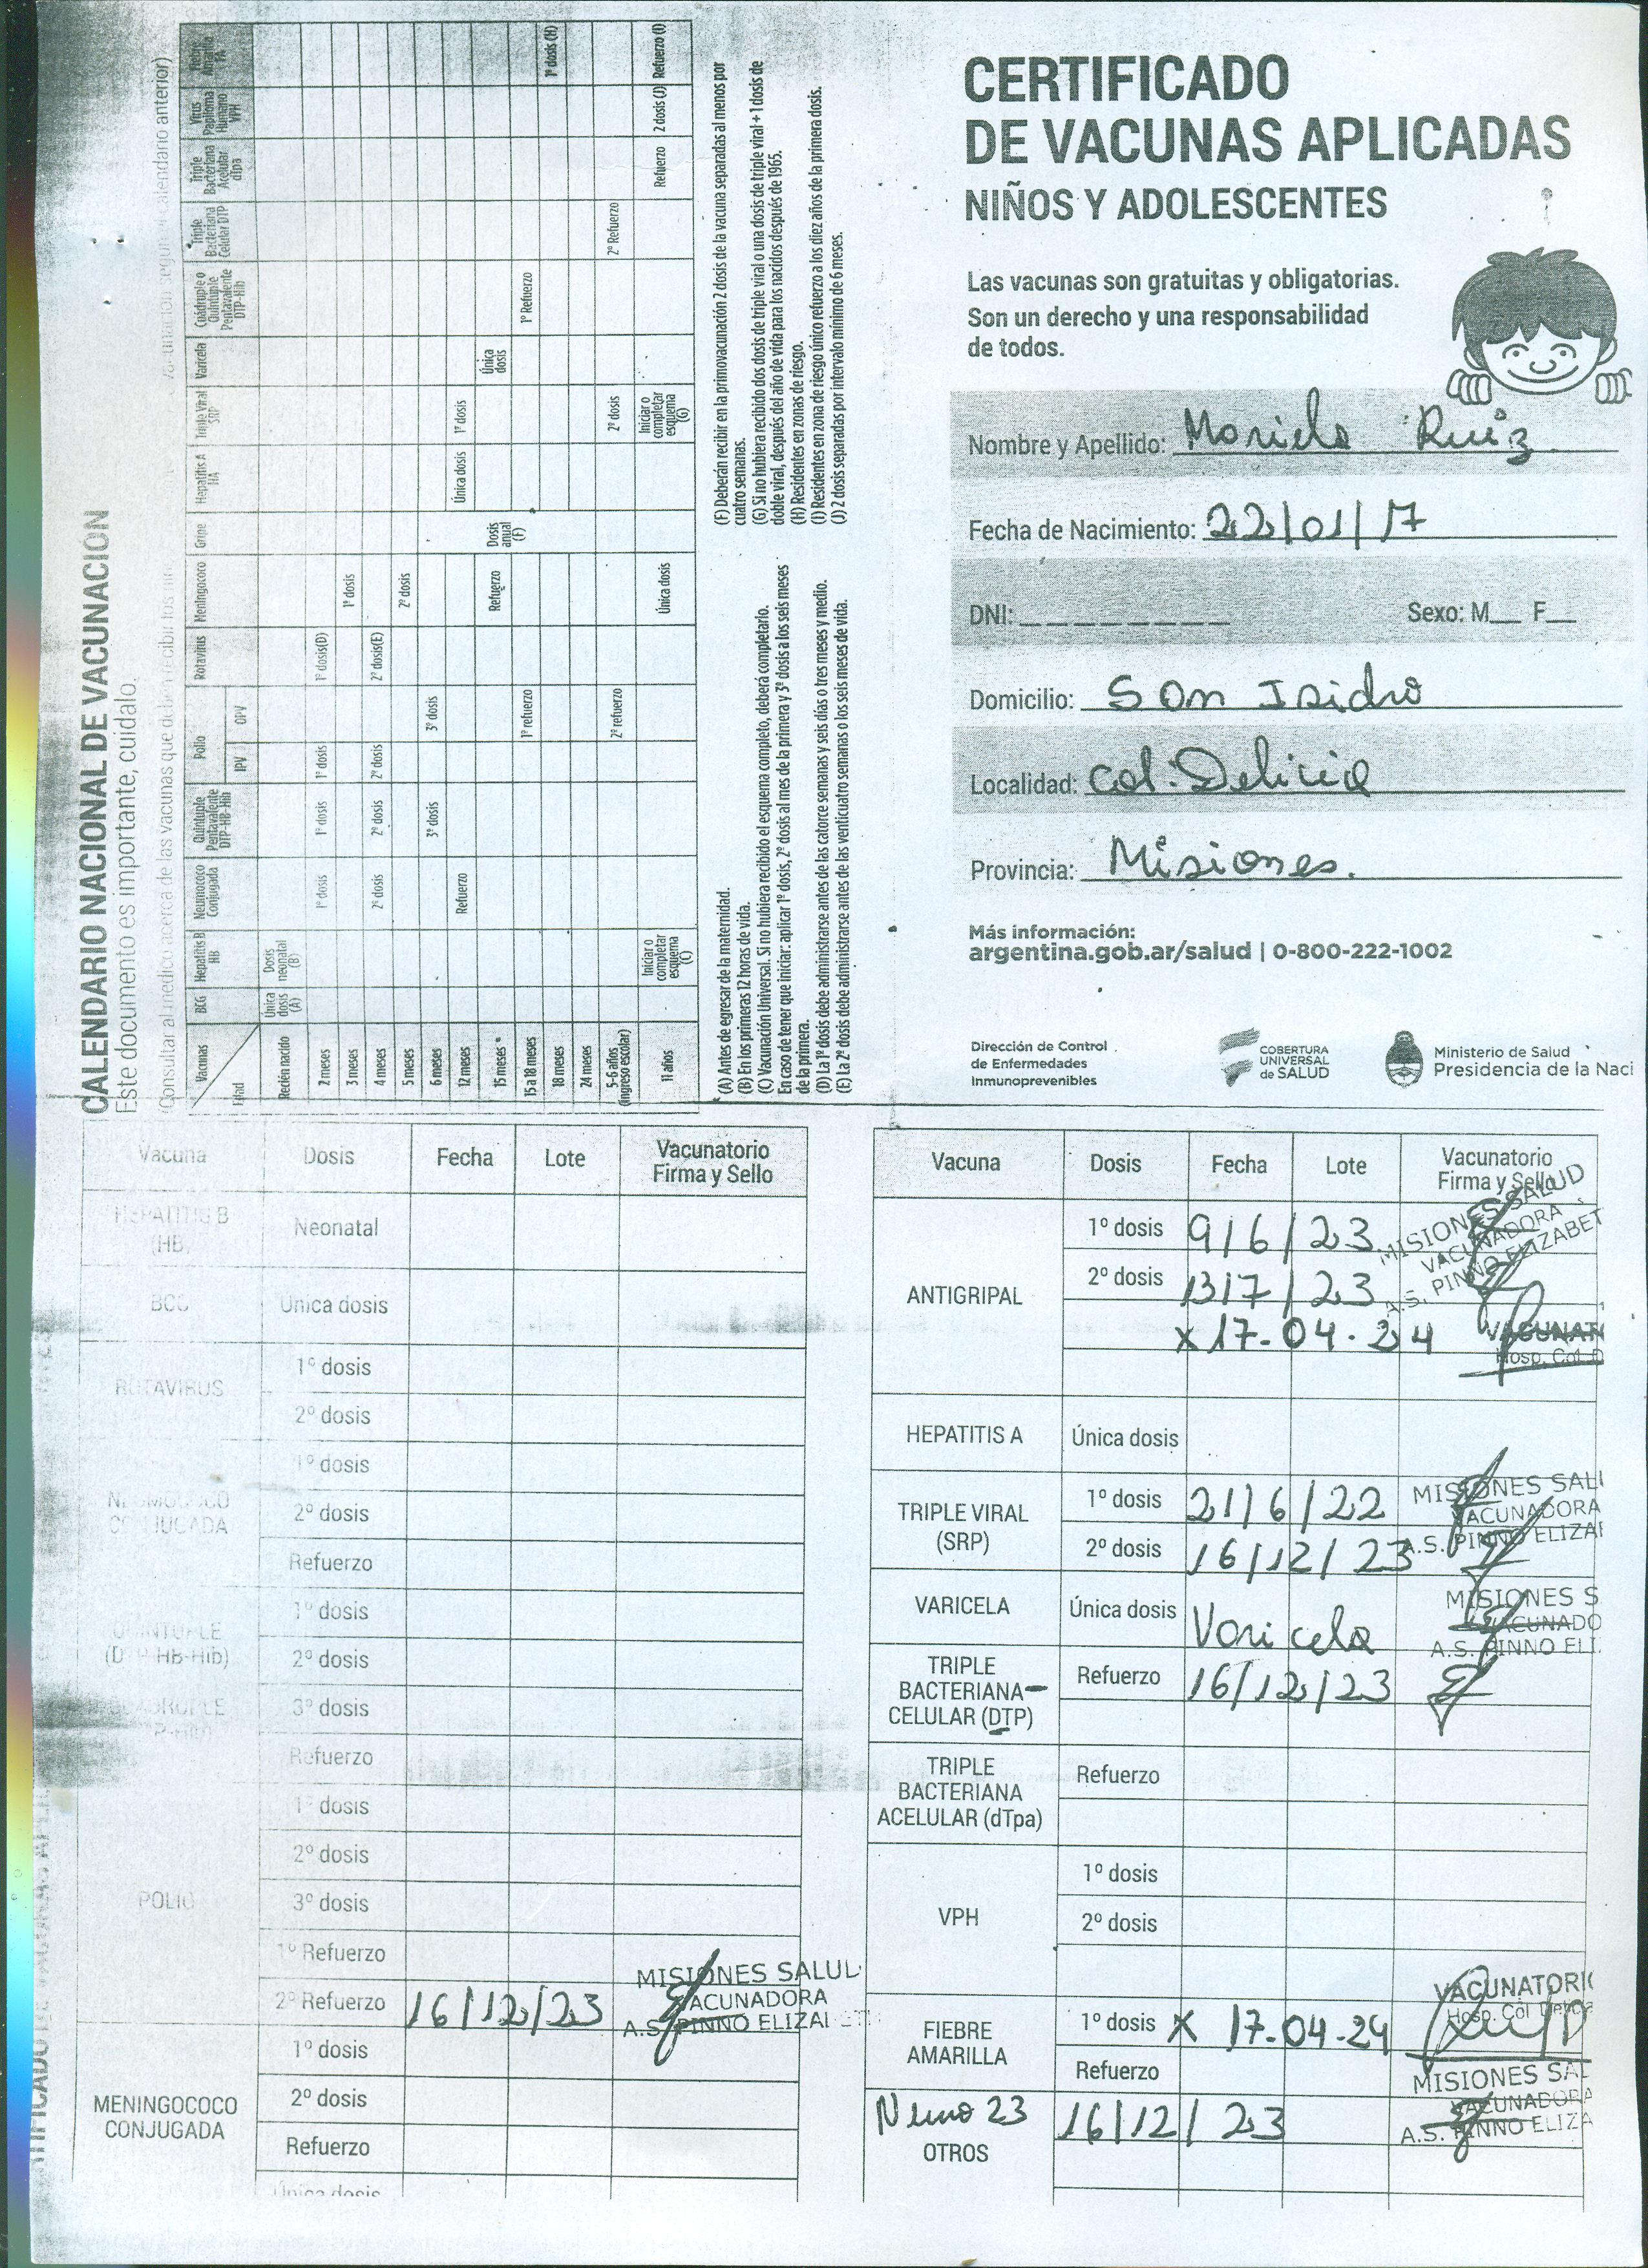 CERTIFICADO
DE VACUNAS APLICADAS
NIÑOS Y ADOLESCENTES
Las vacunas son gratuitas y obligatorias.
Son un derecho y una responsabilidad
de todos.
Nombre y Apellido: Mariela Ruiz
Fecha de Nacimiento: 22/01/17
DNI: _ _ _ _ _ _ _ _ Sexo: M__ F__
Domicilio: San Isidro
Localidad: Col. Delicia
Provincia: Misiones.
Más información:
argentina.gob.ar/salud | 0-800-222-1002
Dirección de Control
de Enfermedades
Inmunoprevenibles
COBERTURA
UNIVERSAL
de SALUD
Ministerio de Salud
Presidencia de la Naci
CALENDARIO NACIONAL DE VACUNACIÓN
Este documento es importante, cuidalo.
(Consultar al médico acerca de las vacunas que deben recibir los calendario anterior)
Vacunas
Edad
BCG
Hepatitis B HB
Neumococo Conjugada
Quíntuple Pentavalente DTP-HB-Hib
Polio
IPV
OPV
Rotavirus
Meningococo
Gripe
Hepatitis A HA
Triple Viral SRP
Varicela
Cuádruple o Quíntuple Pentavalente DTP-Hib
Triple Bacteriana Celular DTP
Triple Bacteriana Acelular dTpa
Virus Papiloma Humano VPH
Fiebre Amarilla FA
Recién nacido Única dosis (A) Dosis neonatal (B)
2 meses 1º dosis 1º dosis 1º dosis 1º dosis(D)
3 meses 1º dosis
4 meses 2º dosis 2º dosis 2º dosis 2º dosis(E)
5 meses 2º dosis
6 meses 3º dosis 3º dosis
12 meses Refuerzo Única dosis 1º dosis
15 meses * Refuerzo Dosis anual (F) Única dosis
15 a 18 meses 1º refuerzo 1º Refuerzo
18 meses 1º dosis (H)
24 meses
5-6 años (ingreso escolar) 2º refuerzo 2º dosis 2º Refuerzo
11 años Iniciar o completar esquema (C) Única dosis Iniciar o completar esquema (G) Refuerzo 2 dosis (J) Refuerzo (I)
(A) Antes de egresar de la maternidad.
(B) En los primeras 12 horas de vida.
(C) Vacunación Universal. Si no hubiera recibido el esquema completo, deberá completarlo.
En caso de tener que iniciar: aplicar 1º dosis, 2º dosis al mes de la primera y 3º dosis a los seis meses
de la primera.
(D) La 1º dosis debe administrarse antes de las catorce semanas y seis días o tres meses y medio.
(E) La 2º dosis debe administrarse antes de las venticuatro semanas o los seis meses de vida.
(F) Deberán recibir en la primovacunación 2 dosis de la vacuna separadas al menos por
cuatro semanas.
(G) Si no hubiera recibido dos dosis de triple viral o una dosis de triple viral + 1 dosis de
doble viral, después del año de vida para los nacidos después de 1965.
(H) Residentes en zonas de riesgo.
(I) Residentes en zona de riesgo único refuerzo a los diez años de la primera dosis.
(J) 2 dosis separadas por intervalo mínimo de 6 meses.
Vacuna Dosis Fecha Lote Vacunatorio Firma y Sello
HEPATITIS B (HB) Neonatal
BCG Única dosis
ROTAVIRUS 1º dosis
2º dosis
NEUMOCOCO CONJUGADA 1º dosis
2º dosis
Refuerzo
QUINTUPLE (DTP-HB-Hib) 1º dosis
2º dosis
3º dosis
Refuerzo
POLIO 1º dosis
2º dosis
3º dosis
1º Refuerzo
2º Refuerzo 16/12/23 MISIONES SALUD VACUNADORA A.S. PINNO ELIZABETH
MENINGOCOCO CONJUGADA 1º dosis
2º dosis
Refuerzo
Única dosis
Vacuna Dosis Fecha Lote Vacunatorio Firma y Sello
ANTIGRIPAL 1º dosis 9/6/23 MISIONES SALUD
VACUNADORA
2º dosis 13/7/23 A.S. PINNO ELIZABET
x 17-04-24 VACUNAT
Hosp. Col D
HEPATITIS A Única dosis
TRIPLE VIRAL (SRP) 1º dosis 21/6/22 MISIONES SALU
VACUNADORA
2º dosis 16/12/23 A.S. PINNO ELIZA
VARICELA Única dosis Varicela MISIONES S
VACUNADO
A.S. PINNO ELI
TRIPLE BACTERIANA CELULAR (DTP) Refuerzo 16/12/23
TRIPLE BACTERIANA ACELULAR (dTpa) Refuerzo
VPH 1º dosis
2º dosis
FIEBRE AMARILLA 1º dosis x 17-04-24 VACUNATORI
Hosp. Col Delicia
Refuerzo
Neumo 23 16/12/23 MISIONES SAL
VACUNADORA
A.S. PINNO ELIZA
OTROS